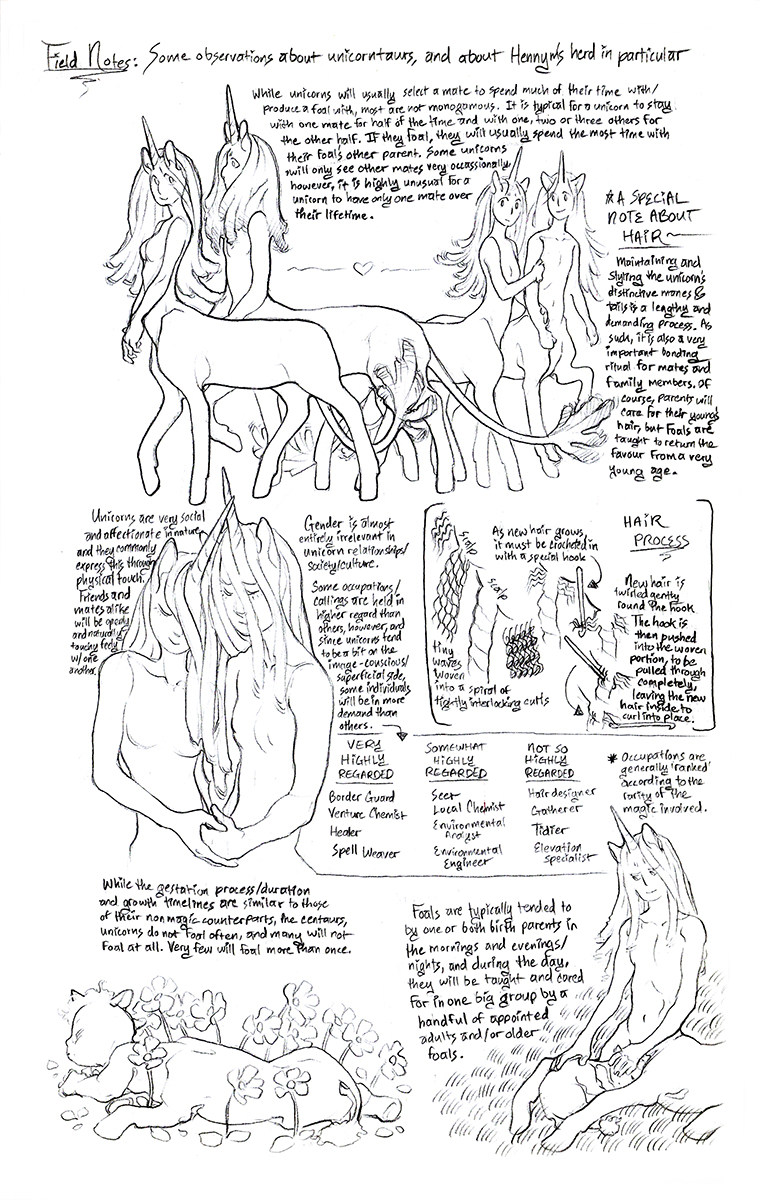 Field Notes: Some observations about unicorntaurs, and about Hennym's herd in particular
While unicorns will usually select a mate to spend much of their time with/
produce a foal with, most are not monogamous. It is typical for a unicorn to stay
with one mate for half of the time and with one, two or three others for
the other half. If they foal, they will usually spend the most time with
their foal's other parent. Some unicorns
will only see other mates very occassionally,
however, it is highly unusual for a
unicorn to have only one mate over
their lifetime.
* A SPECIAL
NOTE ABOUT
HAIR
Maintaining and
styling the unicorn's
distinctive manes &
tails is a lengthy and
demanding process. As
such, it is also a very
important bonding
ritual for mates and
family members. Of
course, parents will
care for their young's
hair, but foals are
taught to return the
favour from a very
young age.
Unicorns are very social
and affectionate in nature,
and they commonly
express this through
physical touch.
Friends and
mates alike
will be openly
and naturally
touchy feely
w/ one
another.
Gender is almost
entirely irrelevant in
unicorn relationships/
society/culture.
Some occupations/
callings are held in
higher regard than
others, however, and
since unicorns tend
to be a bit on the
image-conscious/
superficial side,
some individuals
will be in more
demand than
others.
HAIR
PROCESS
As new hair grows,
it must be crocheted in
with a special hook
scalp
scalp
tiny
waves
woven
into a spiral of
tightly interlocking curls
New hair is
twirled gently
round the hook
The hook is
then pushed
into the woven
portion, to be
pulled through
completely,
leaving the new
hair inside to
curl into place.
VERY
HIGHLY
REGARDED
Border Guard
Venture Chemist
Healer
Spell Weaver
SOMEWHAT
HIGHLY
REGARDED
Seer
Local Chemist
Environmental
Analyst
Environmental
Engineer
NOT SO
HIGHLY
REGARDED
Hair designer
Gatherer
Tidier
Elevation
Specialist
* Occupations are
generally 'ranked'
according to the
rarity of the
magic involved.
While the gestation process/duration
and growth timelines are similar to those
of their non magic counterparts, the centaurs,
unicorns do not foal often, and many will not
foal at all. Very few will foal more than once.
Foals are typically tended to
by one or both birth parents in
the mornings and evenings/
nights, and during the day,
they will be taught and cared
for in one big group by a
handful of appointed
adults and/or older
foals.